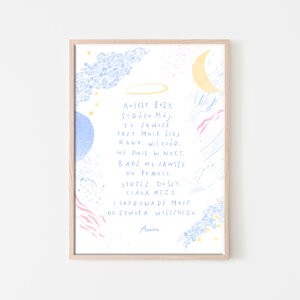 ANIELE BOŻY
STRÓŻU MÓJ,
TY ZAWSZE
PRZY MNIE STÓJ.
RANO, WIECZÓR,
WE DNIE, W NOCY,
BĄDŹ MI ZAWSZE
KU POMOCY.
STRZEŻ DUSZY,
CIAŁA MEGO
I ZAPROWADŹ MNIE
DO ŻYWOTA WIECZNEGO.
Amen